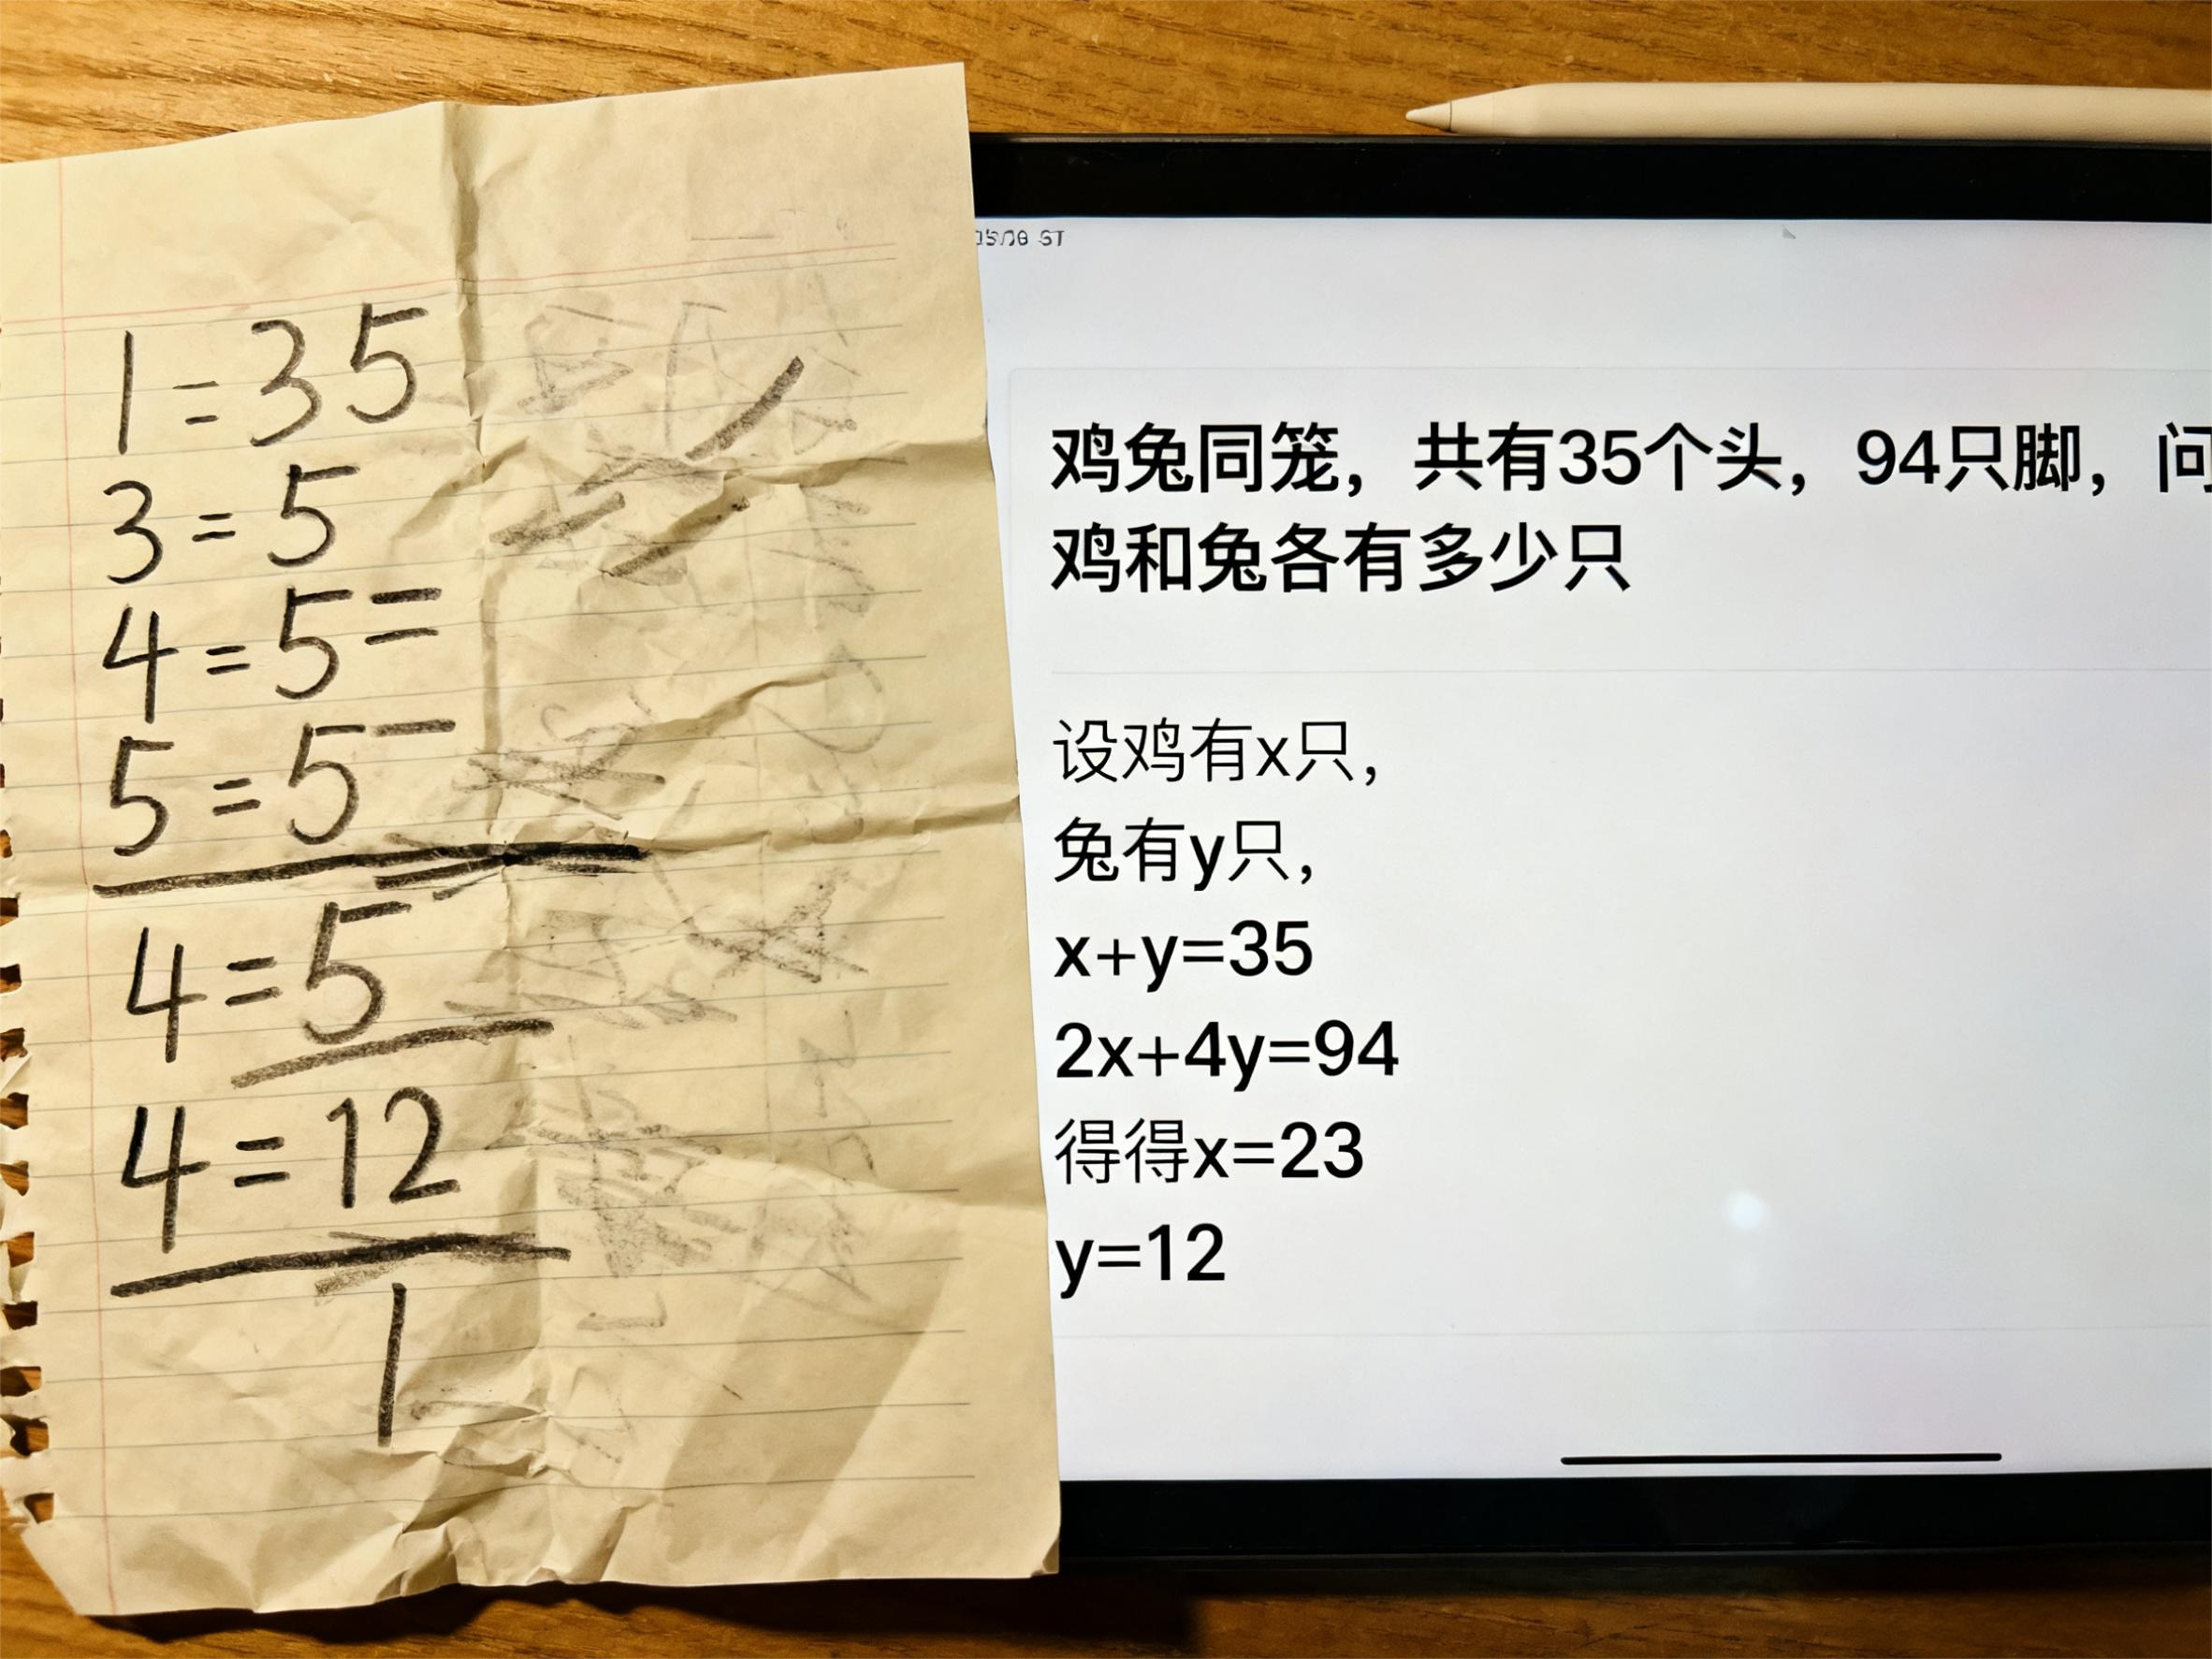 1=35
3=5
4=5=
5=5-
4=5
4=12
1
鸡兔同笼，共有35个头，94只脚，问
鸡和兔各有多少只
设鸡有x只，
兔有y只，
x+y=35
2x+4y=94
得得x=23
y=12